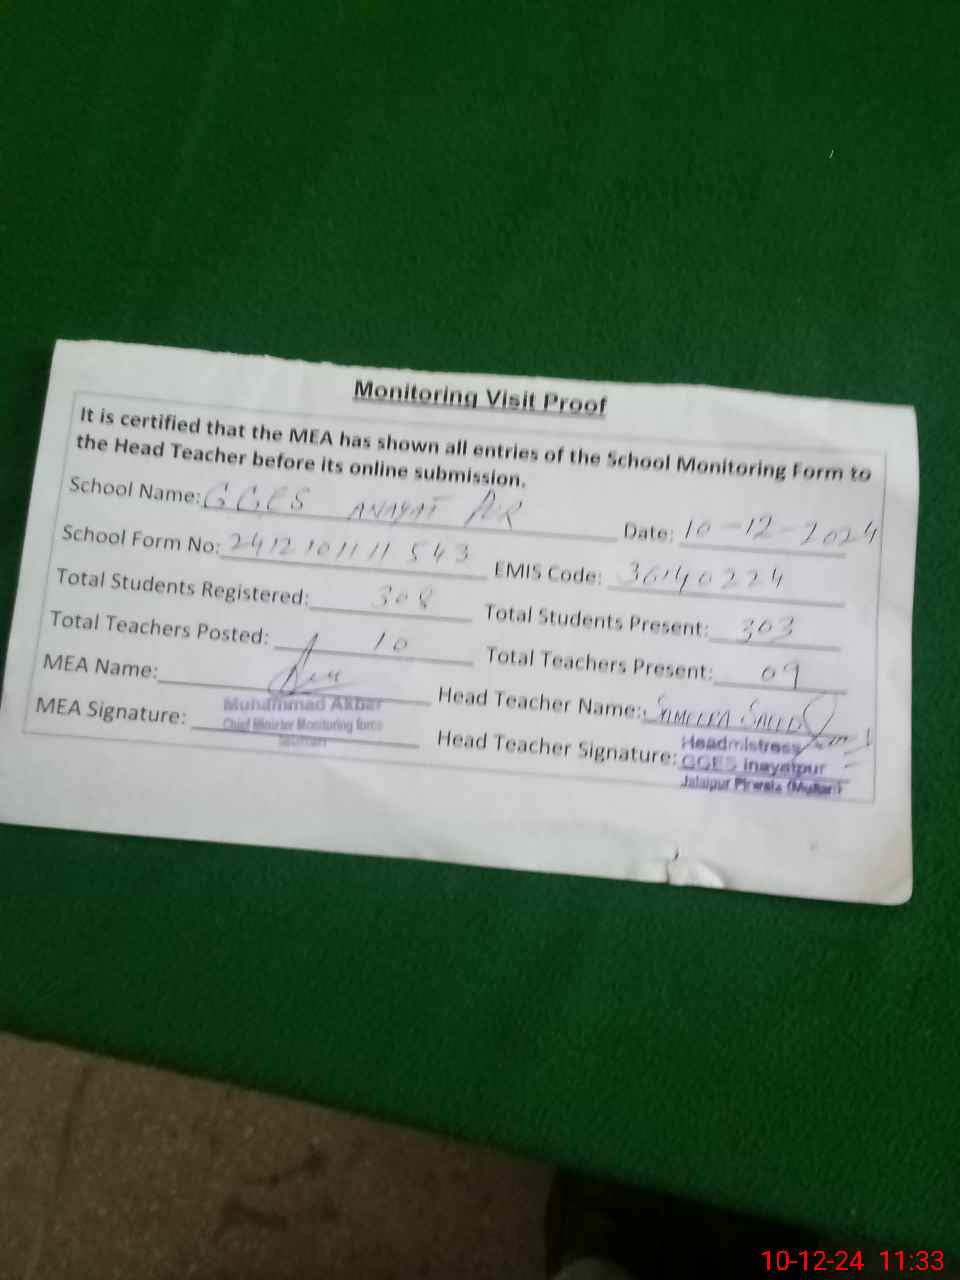 Monitoring Visit Proof
It is certified that the MEA has shown all entries of the School Monitoring Form to
the Head Teacher before its online submission.
School Name: GGES ANAYAT PUR Date: 10-12-2024
School Form No: 2412101111543 EMIS Code: 36140224
Total Students Registered: 308 Total Students Present: 303
Total Teachers Posted: 10 Total Teachers Present: 09
MEA Name: Head Teacher Name: SAMEERA SAEED
Muhammad Akbar
Chief Minister Monitoring force
MEA Signature: Head Teacher Signature:
Headmistress
GGES Inayatpur
Jalalpur Pirwala (Multan)
10-12-24 11:33